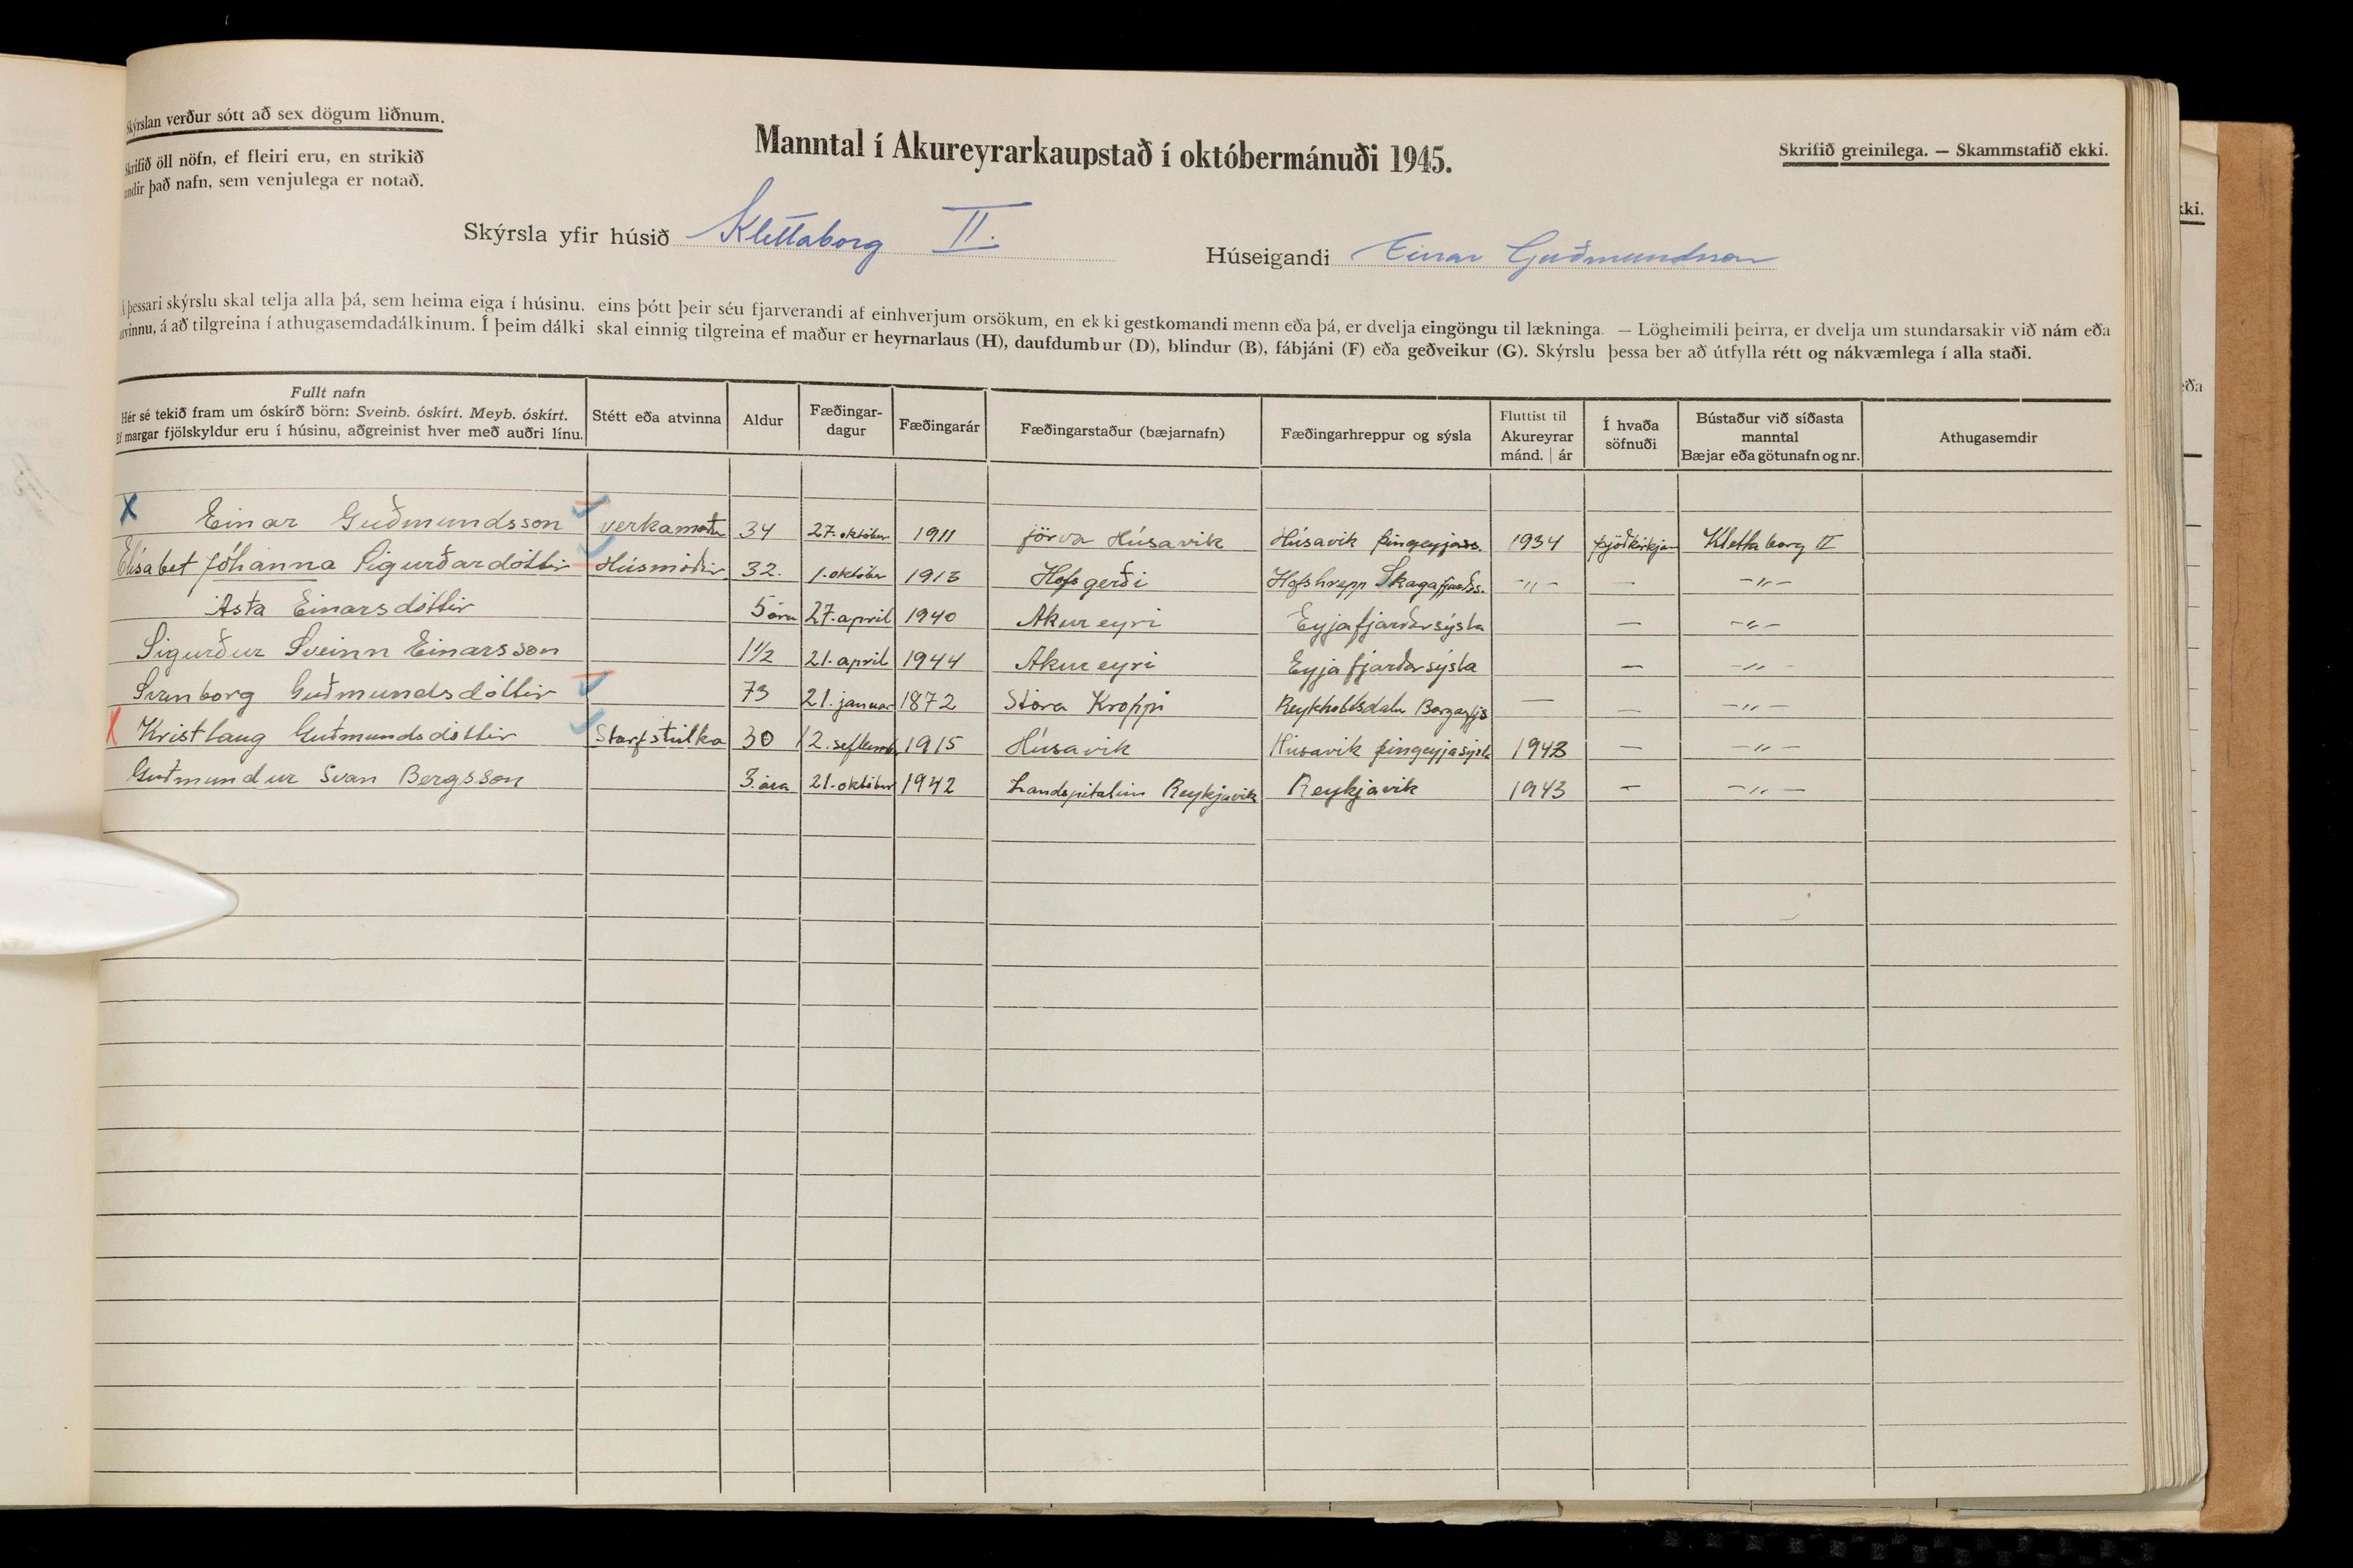 Skýrslan verður sótt að sex dögum liðnum.
Skrifið öll nöfn, ef fleiri eru, en strikið
undir það nafn, sem venjulega er notað.
Manntal í Akureyrarkaupstað í októbermánuði 1945.
Skrifið greinilega. — Skammstafið ekki.
Skýrsla yfir húsið Klettaborg II.
Húseigandi Einar Guðmundsson
Á þessari skýrslu skal telja alla þá, sem heima eiga í húsinu, eins þótt þeir séu fjarverandi af einhverjum orsökum, en ekki gestkomandi menn eða þá, er dvelja eingöngu til lækninga. — Lögheimili þeirra, er dvelja um stundarsakir við nám eða
atvinnu, á að tilgreina í athugasemdadálkinum. Í þeim dálki skal einnig tilgreina ef maður er heyrnarlaus (H), daufdumbur (D), blindur (B), fábjáni (F) eða geðveikur (G). Skýrslu þessa ber að útfylla rétt og nákvæmlega í alla staði.
Fullt nafn
Hér sé tekið fram um óskírð börn: Sveinb. óskírt. Meyb. óskírt.
Ef margar fjölskyldur eru í húsinu, aðgreinist hver með auðri línu.
Stétt eða atvinna
Aldur
Fæðingar-
dagur
Fæðingarár
Fæðingarstaður (bæjarnafn)
Fæðingarhreppur og sýsla
Fluttist til
Akureyrar
mánd. | ár
Í hvaða
söfnuði
Bústaður við síðasta
manntal
Bæjar eða götunafn og nr.
Athugasemdir
X Einar Guðmundsson verkamaður 34 27. október 1911 Jörva Húsavik Húsavik Þingeyjars. 1934 Þjóðkirkjan Klettaborg II
Elísabet Jóhanna Sigurðardóttir Húsmóðir 32. 1. október 1913 Hofsgerði Hofshrepp Skagafjarðs. -"- — -"-
Ásta Einarsdóttir 5 ára 27. april 1940 Akureyri Eyjafjarðarsýsla — -"-
Sigurður Sveinn Einarsson 1 1/2 21. april 1944 Akureyri Eyjafjarðarsýsla — -"-
Svanborg Guðmundsdóttir 73 21. januar 1872 Stóra Kroppi Reykholtsdalur Borgarfjs — — -"-
X Kristlaug Guðmundsdóttir Starfstúlka 30 12. september 1915 Húsavik Húsavik Þingeyjasýsla 1943 — -"-
Guðmundur Svan Bergsson 3. ára 21. október 1942 Landspitalin Reykjavik Reykjavik 1943 — -"-
kki.
eða